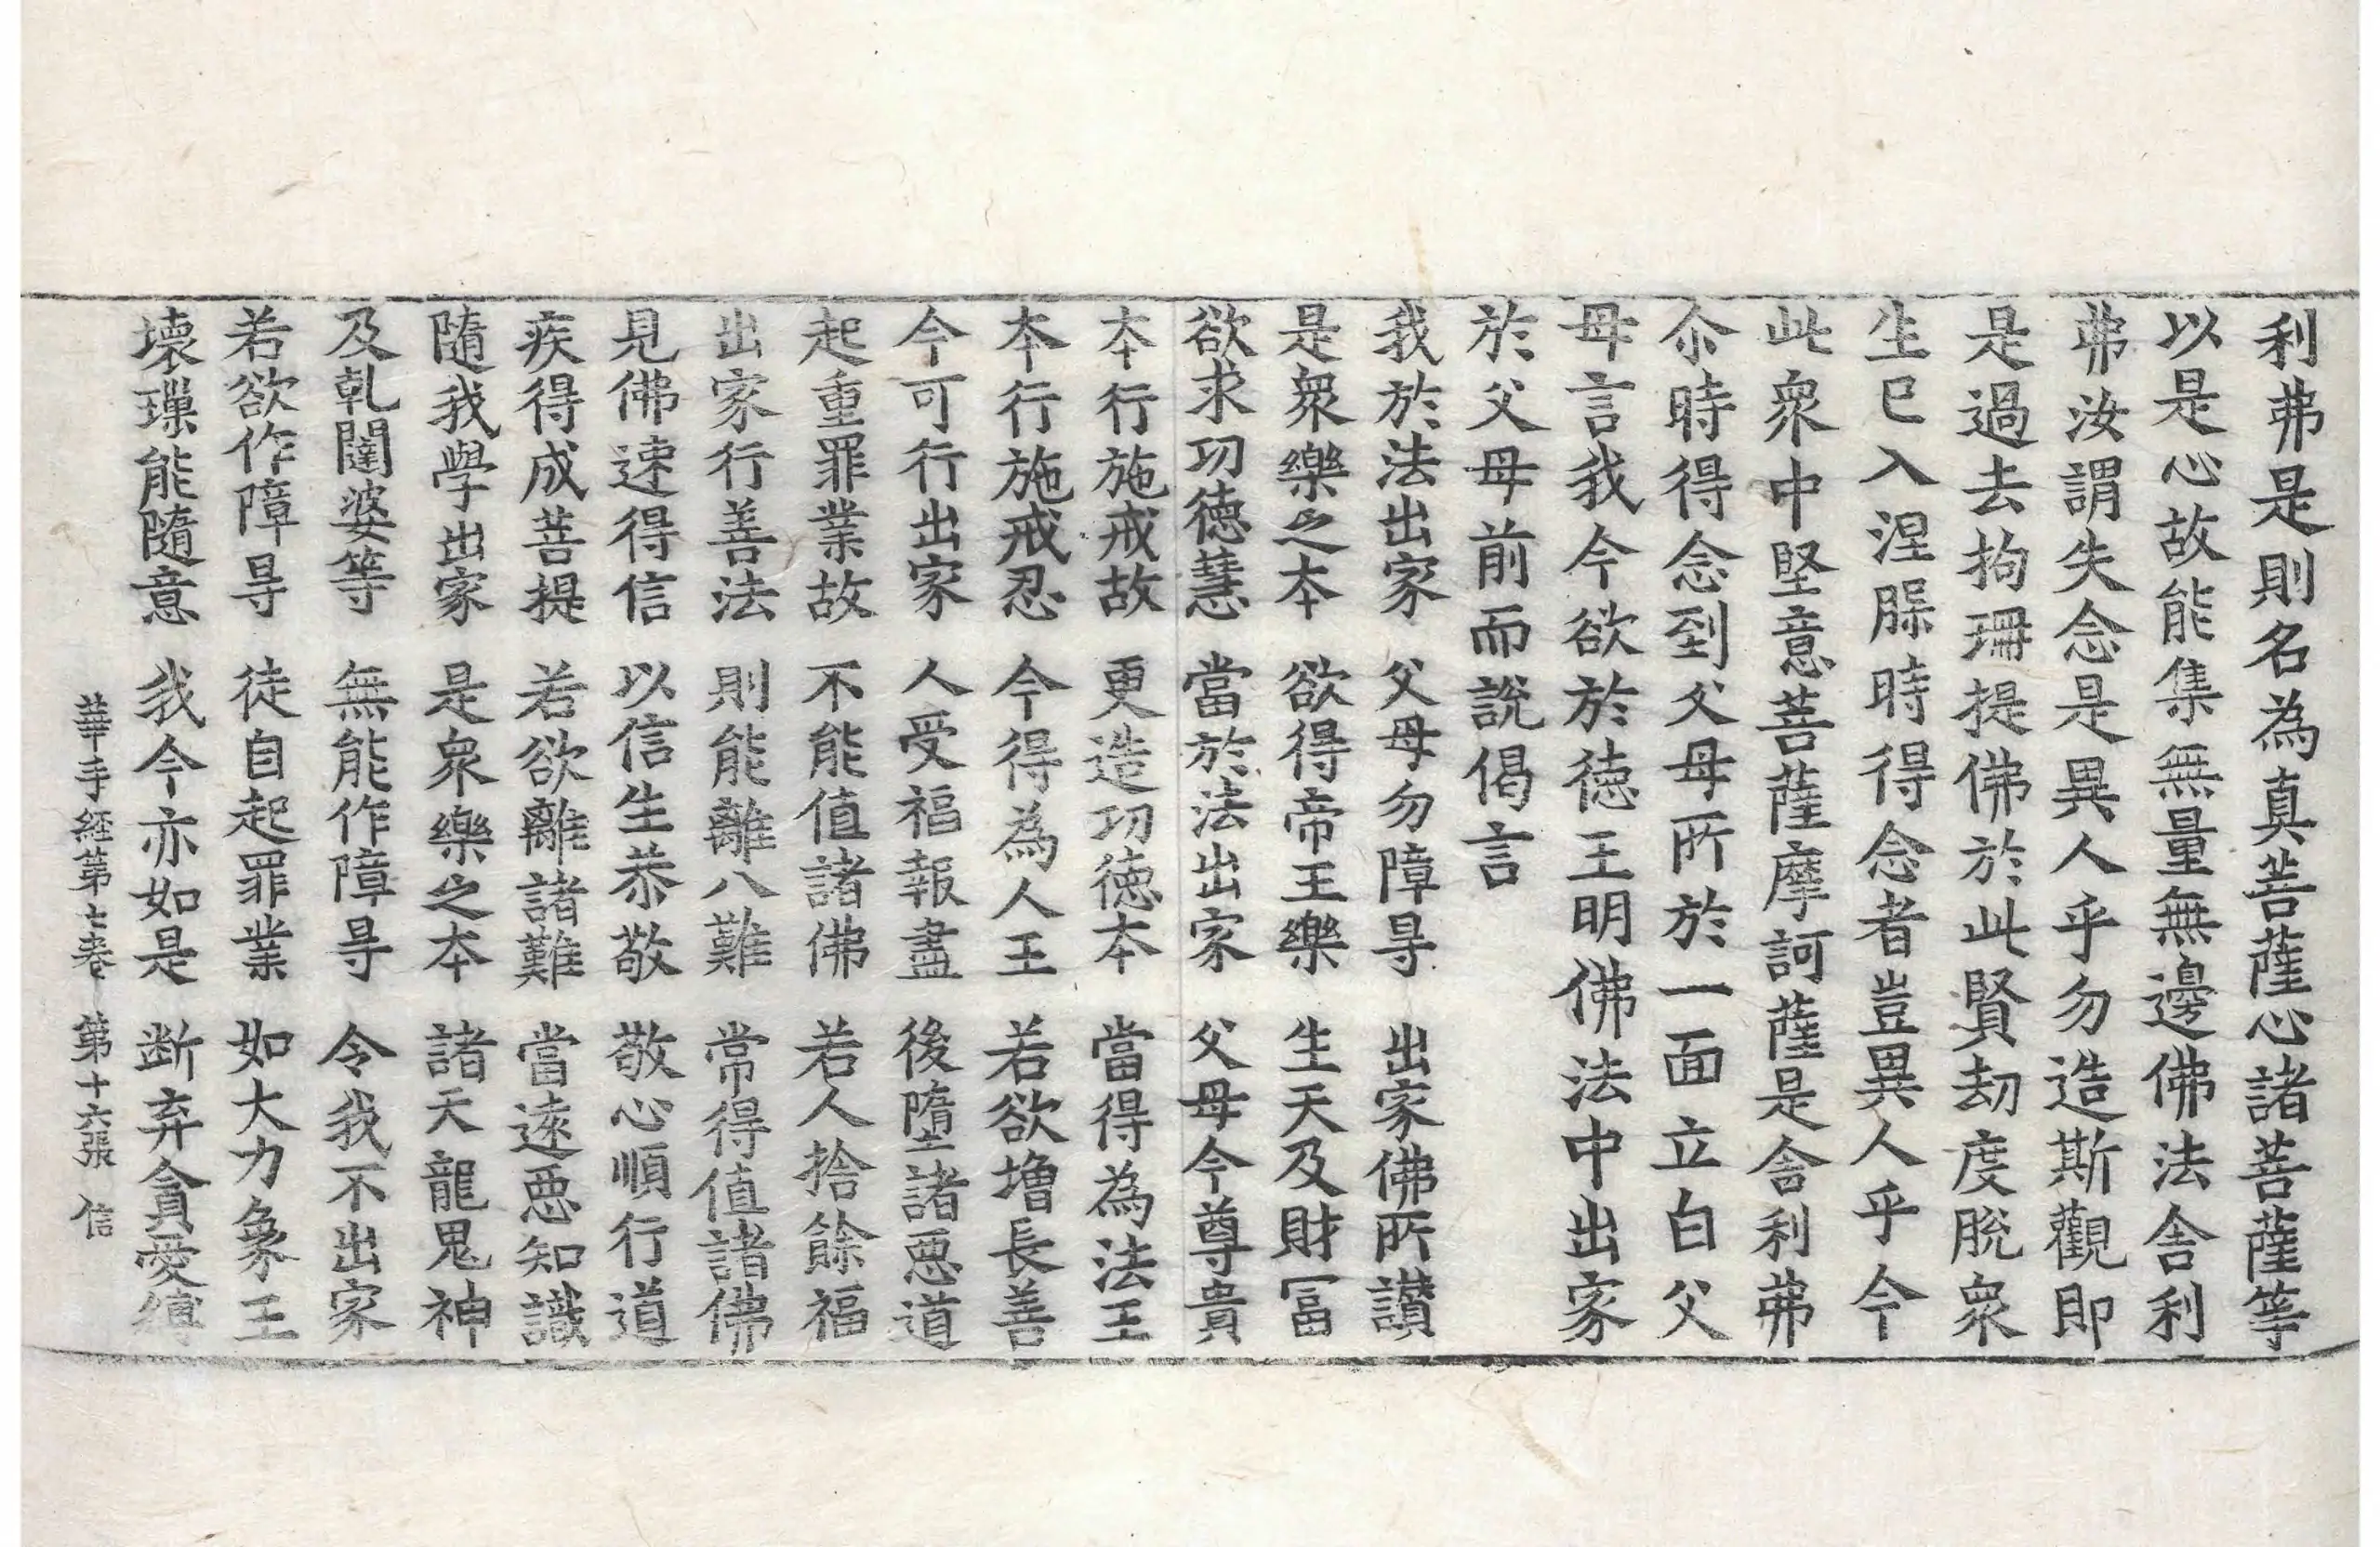 利弗是則名為真菩薩心諸菩薩等
以是心故能集無量無邊佛法舍利
弗汝謂失念是異人乎勿造斯觀即
是過去拘珊提佛於此賢劫度脫衆
生已入涅膟時得念者豈異人乎今
此衆中堅意菩薩摩訶薩是舍利弗
尒時得念到父母所於一面立白父
母言我今欲於德王明佛法中出家
於父母前而說偈言
我於法出家 父母勿障㝵 出家佛所讃
是衆樂之本 欲得帝王樂 生天及財冨
欲求功德慧 當於法出家 父母今尊貴
本行施戒故 更造功德本 當得為法王
本行施戒忍 今得為人王 若欲增長善
今可行出家 人受福報盡 後墮諸惡道
起重罪業故 不能值諸佛 若人捨餘福
出家行善法 則能離八難 常得值諸佛
見佛速得信 以信生恭敬 敬心順行道
疾得成菩提 若欲離諸難 當遠惡知識
隨我學出家 是衆樂之本 諸天龍鬼神
及乹闥婆等 無能作障㝵 令我不出家
若欲作障㝵 徒自起罪業 如大力象王
壞璅能隨意 我今亦如是 断弃貪愛縛
華手経第七卷 第十六張 信